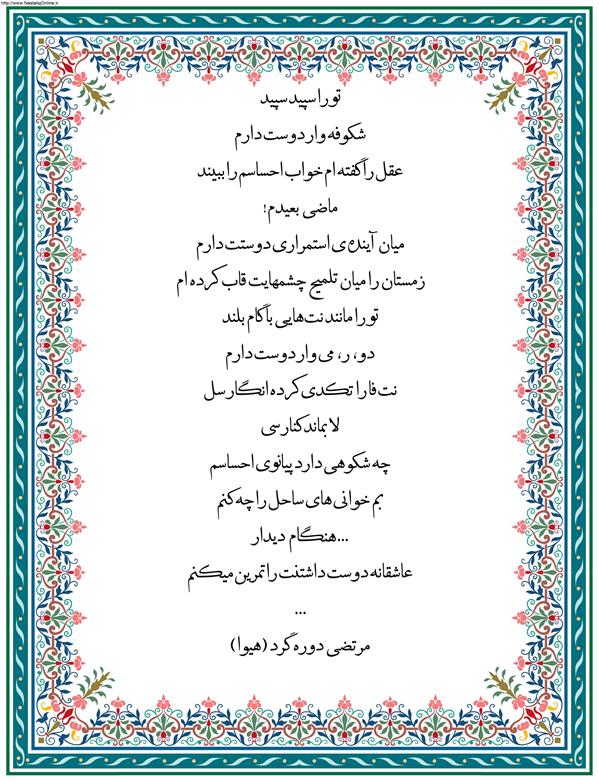 http://www.NastaliqOnline.ir
تو را سپید سپید
شکوفه وار دوست دارم
عقل را گفته ام خواب احساسم را ببیند
ماضی بعیدم!
میان آینده‌ی استمراری دوستت دارم
زمستان را میان تلمیح چشمهایت قاب کرده ام
تو را مانند نت‌هایی با گام بلند
دو، ر، می وار دوست دارم
نت فا را تکدی کرده انگار سل
لا بماند کنار سی
چه شکوهی دارد پیانوی احساسم
بم خوانی های ساحل را چه کنم
...هنگام دیدار
عاشقانه دوست داشتنت را تمرین میکنم
...
مرتضی دوره گرد (هیوا)